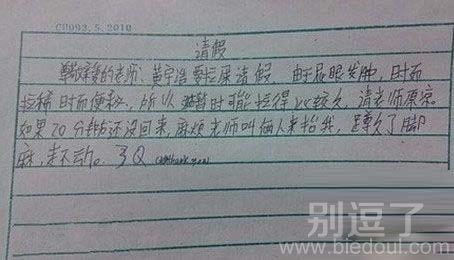 CH093.5.2010
请假
尊敬亲爱的老师：黄宇 要拉屎请假 由于屁眼发肿，时而
拉稀时而便秘，所以 时可能拉得比较久 请老师原谅。
如果20分钟后还没回来，麻烦老师叫俩人来抬我，蹲久了脚
麻，走不动。3Q thank you
别逗了
www.biedoul.com